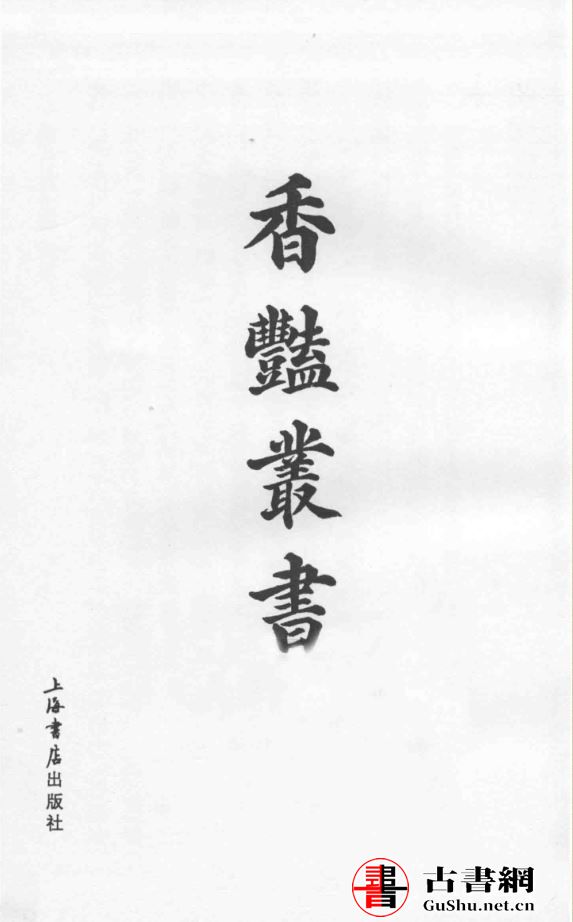 香豔叢書
上海書店出版社
書
古書網
GuShu.net.cn